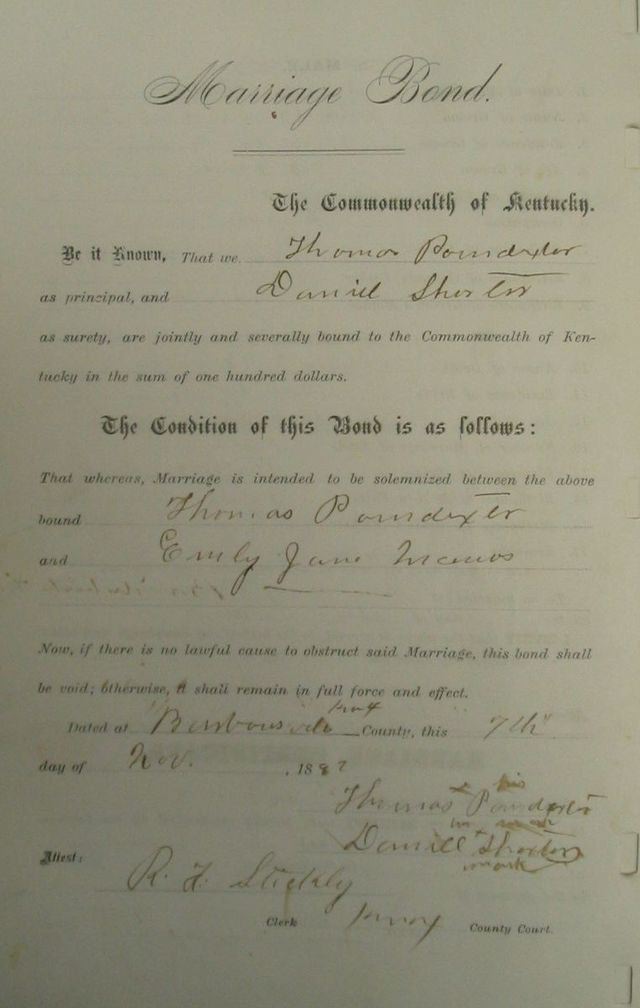 Marriage Bond.
The Commonwealth of Kentucky.
Be it Known, That we Thomas Poindexter
as principal, and Daniel Shorter
as surety, are jointly and severally bound to the Commonwealth of Ken-
tucky in the sum of one hundred dollars.
The Condition of this Bond is as follows:
That whereas, Marriage is intended to be solemnized between the above
bound Thomas Poindexter
and Emily Jane
Now, if there is no lawful cause to obstruct said Marriage, this bond shall
be void; otherwise, it shall remain in full force and effect.
Knox
Dated at Barboursville County, this 7th
day of Nov. , 188
his
Thomas x Poindexter
mark
Daniel x Shorter
mark
Attest:
R. F. Stickly
Clerk Knox County Court.